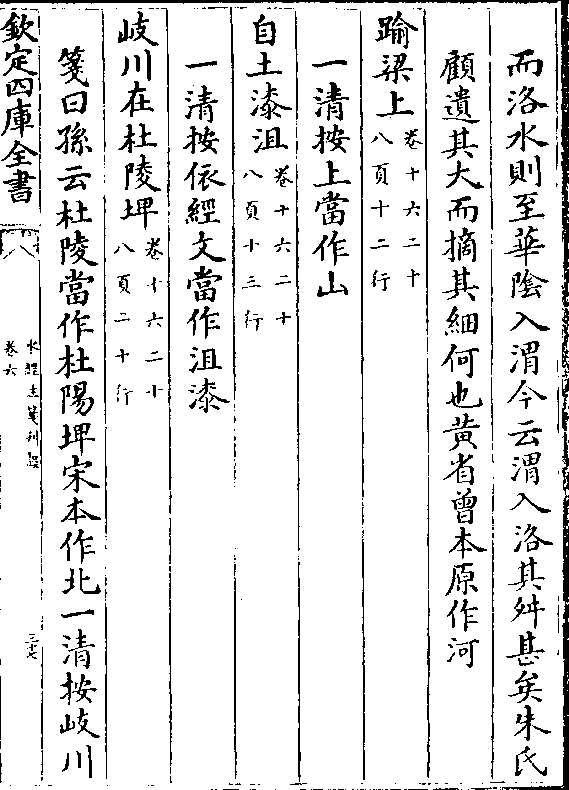 而洛水則至華隂入渭今云渭入洛其舛甚矣朱氏
顧遺其大而摘其細何也黄省曾本原作河
踰梁上卷十六二十八頁十二行
一清按上當作山
自土漆沮卷十六二十八頁十三行
一清按依經文當作沮漆
岐川在杜陵埤卷十六二十八頁二十行
箋曰孫云杜陵當作杜陽埤宋本作北一清按岐川
欽定四庫全書
水經注箋刋誤
卷六
三十七